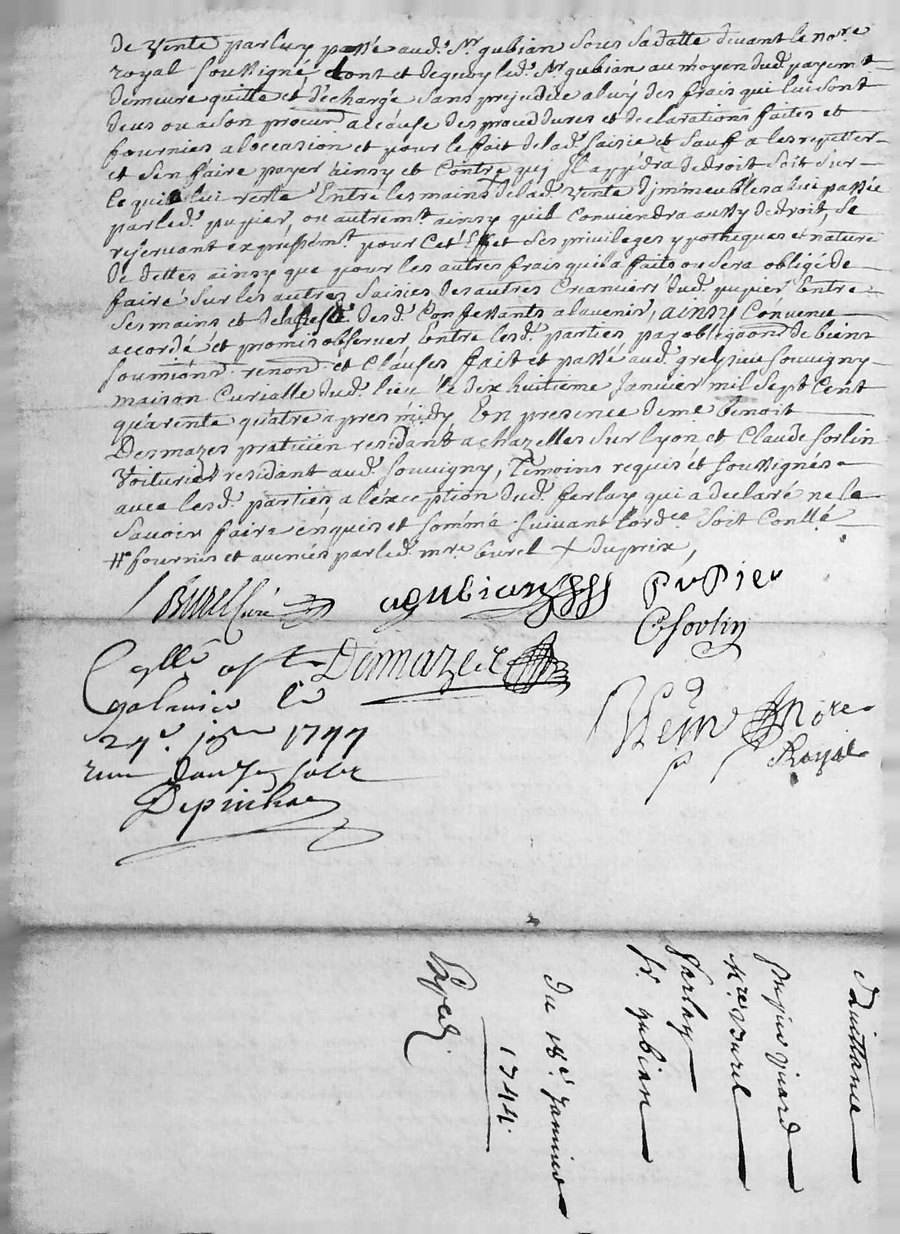 de vente par luy passé aud. Sr. gubian sous sa datte devant le nore.
royal soussigné dont et dequoy led. Sr. gubian au moyen dud. payemt.
demeure quitte et déchargé sans prejudice a luy des frais qui lui sont
deus ou a son procur. a cause des procedures et declarations faites et
fournies a loccasion et pour le fait de lad. saisie et sauff a les repetter
et sen faire payer ainsy et contre qui Il appdra de droit soit sur
ce qui lui reste Entre les mains de lad. vente d'immeubles a lui passée
par led. pupier, ou autremt. ainsy quil conviendra aussy de droit, se
reservant expressémt. pour cet Effet ses privileges ypotheques et nature
de dettes ainsy que pour les autres frais quil a faits ou sera obligé de
faire sur les autres saisies des autres creanciers dud. pupier Entre
ses mains et de desd. Confessants a lavenir, ainsy convenu
accordé et promis observer Entre lesd. parties par obligaons de biens
soumions. renond. et clauses fait et passé aud. grezieu souvigny
maison curialle dud. lieu le dix huitieme Janvier mil sept cent
quarente quatre apres midy En presence de me. benoit
Desmazes praticien residant a chazelles sur lyon et Claude forlin
voiturier residant aud. souvigny, Témoins requis et soussignés
avec lesd. parties, a l'éxception dud. ferlay qui a declaré ne le
savoir faire enquis et sommé suivant lordce soit Conllé
# fournis et avenies par led. mre burel + du prix,
Burel curé agubian Pupier
C forlin
Collé Démazes
galmier le
24e. 1744
nore
Royal
Quittance
pupier
mre. Burel
ferlay
sr. gubian
du 18e. Janvier
1744.
Exped.